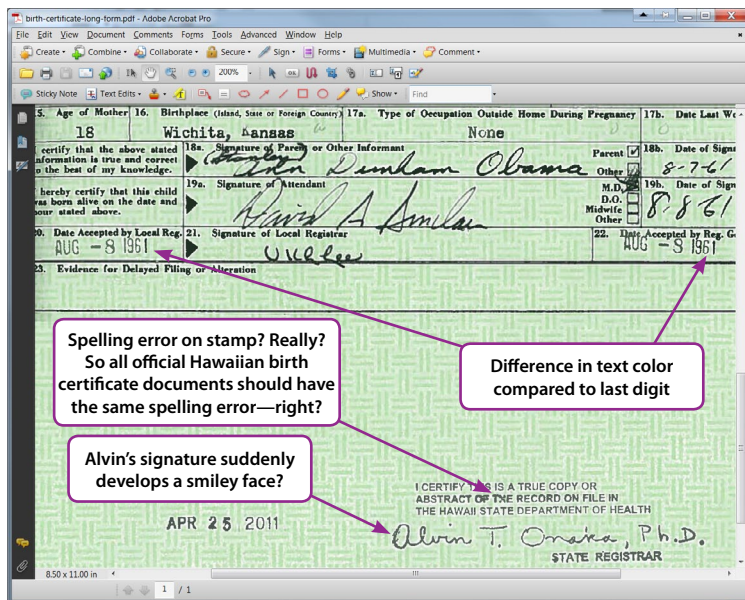 birth-certificate-long-form.pdf - Adobe Acrobat Pro
File Edit View Document Comments Forms Tools Advanced Window Help
Create Combine Collaborate Secure Sign Forms Multimedia Comment
200%
Sticky Note Text Edits Show Find
5. Age of Mother 16. Birthplace (Island, State or Foreign Country) 17a. Type of Occupation Outside Home During Pregnancy 17b. Date Last
18 Wichita, Kansas None
certify that the above stated 18a. Signature of Parent or Other Informant Parent 18b. Date of Sign
information is true and correct (Stanley) Ann Dunham Obama Other 8-7-61
to the best of my knowledge.
hereby certify that this child 19a. Signature of Attendant M.D. 19b. Date of Sign
was born alive on the date and David A Sinclair D.O. 8-8-61
hour stated above. Midwife
Other
20. Date Accepted by Local Reg. 21. Signature of Local Registrar 22. Date Accepted by Reg. G
AUG -8 1961 U K L Lee AUG -8 1961
23. Evidence for Delayed Filing or Alteration
Spelling error on stamp? Really?
So all official Hawaiian birth
certificate documents should have
the same spelling error—right?
Difference in text color
compared to last digit
Alvin's signature suddenly
develops a smiley face?
I CERTIFY THIS IS A TRUE COPY OR
ABSTRACT OF TXE RECORD ON FILE IN
THE HAWAII STATE DEPARTMENT OF HEALTH
APR 25 2011
Alvin T. Onaka, Ph.D.
STATE REGISTRAR
8.50 x 11.00 in
1 / 1